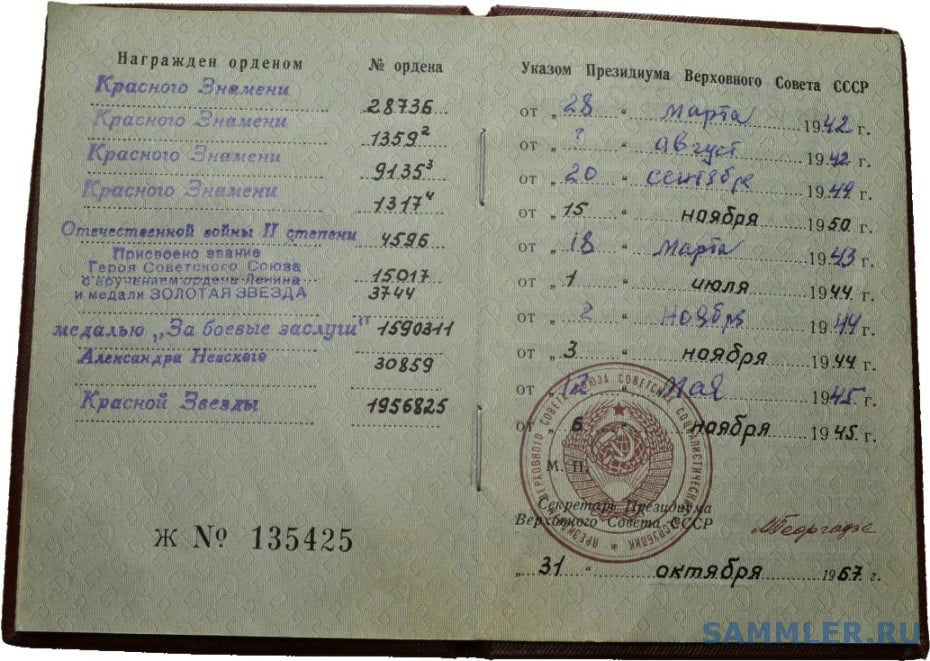 Награжден орденом № ордена
Красного Знамени 28736
Красного Знамени 1359²
Красного Знамени 9135³
Красного Знамени 1317⁴
Отечественной войны II степени 4596
Присвоено звание
Героя Советского Союза
с вручением ордена Ленина 15017
и медали ЗОЛОТАЯ ЗВЕЗДА 3744
медалью „За боевые заслуги" 1590311
Александра Невского 30859
Красной Звезды 1956825
Ж № 135425
Указом Президиума Верховного Совета СССР
от „28 “ марта 1942 г.
от „ ? “ август 1942 г.
от „20 “ сентябре 1944 г.
от „15 “ ноября 1950 г.
от „18 “ марта 1943 г.
от „1 “ июля 1944 г.
от „2 “ ноября 1944 г.
от „3 “ ноября 1944 г.
от „12 “ мая 1945 г.
от „6 “ ноября 1945 г.
М. П.
Секретарь Президиума
Верховного Совета СССР
„31 “ октября 1967 г.
SAMMLER.RU